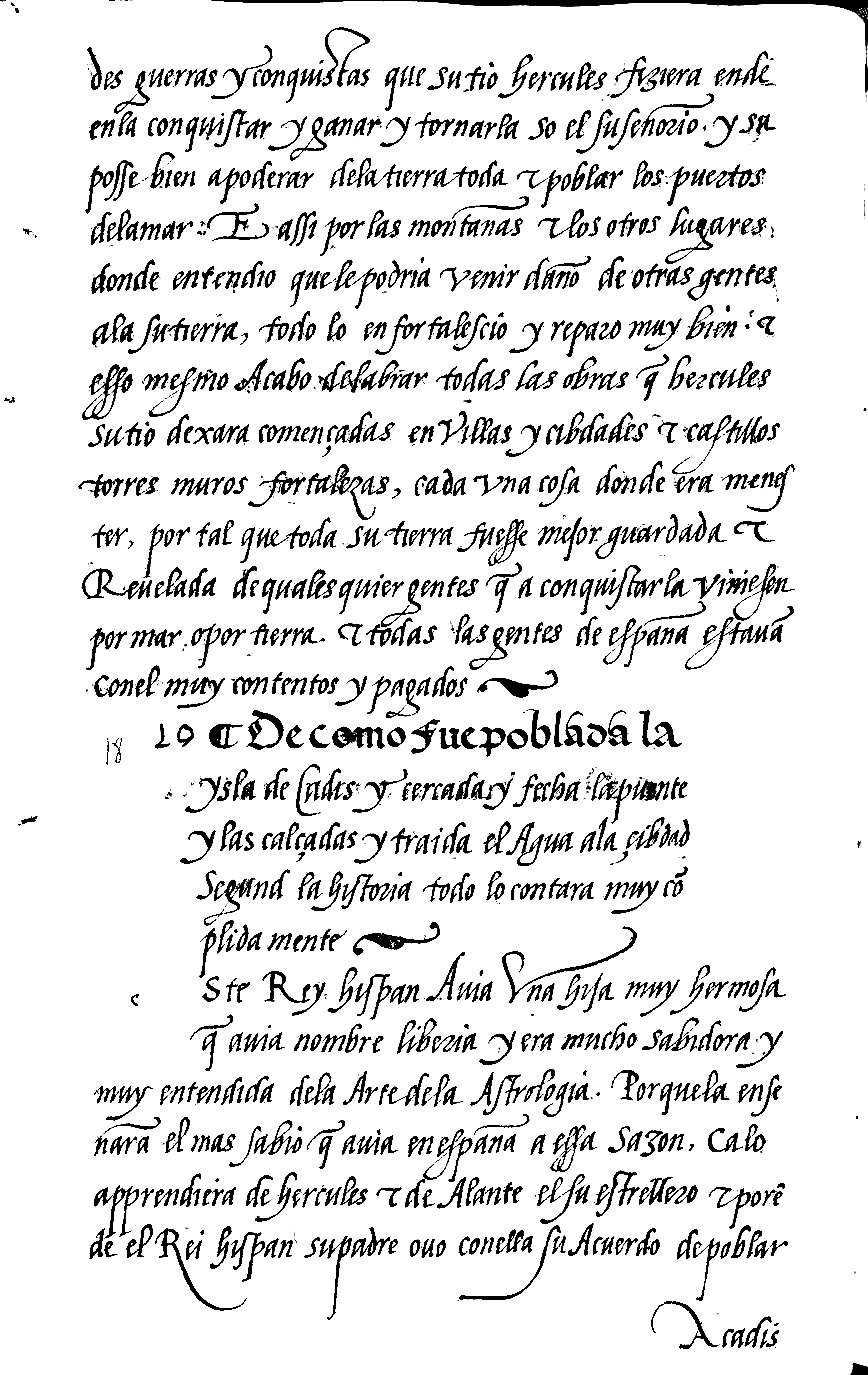 des guerras y conquistas que su tio hercules fiziera ende
en la conquistar y ganar y tornarla so el su señorio. y su
posse bien apoderar dela tierra toda ⁊ poblar los puertos
delamar: E assi por las montañas ⁊ los otros lugares,
donde entendio que le podria venir daño de otras gentes
ala su tierra, todo lo enfortalescio y reparo muy bien: ⁊
esso mesmo Acabo de labrar todas las obras q̃ hercules
su tio dexara començadas en Villas y cibdades ⁊ castillos
torres muros fortalezas, cada vna cosa donde era menes
ter, por tal que toda su tierra fuesse mejor guardada ⁊
Revelada de quales quier gentes q̃ a conquistarla viniesen
por mar, o por tierra. ⁊ todas las gentes de españa estauã
conel muy contentos y pagados
18 19 ¶ De como fue poblada la
ysla de Cadis y cercada y fecha la puente
y las calçadas y traida el Agua ala çibdad
Segund la historia todo lo contara muy cõ
plida mente
e Ste Rey hispan Auia Vna hija muy hermosa
q̃ auia nombre liberia y era mucho sabidora y
muy entendida dela Arte dela Astrologia. Porque la ense
ñara el mas sabio q̃ auia en españa a essa sazon, Ca lo
apprendiera de hercules ⁊ de Alante el su estrellero ⁊ porẽ
de el Rei hispan su padre ouo conella su Acuerdo de poblar
A cadis